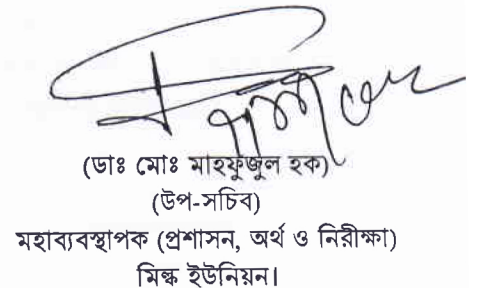 (ডাঃ মোঃ মাহফুজুল হক)
(উপ-সচিব)
মহাব্যবস্থাপক (প্রশাসন, অর্থ ও নিরীক্ষা)
মিল্ক ইউনিয়ন।